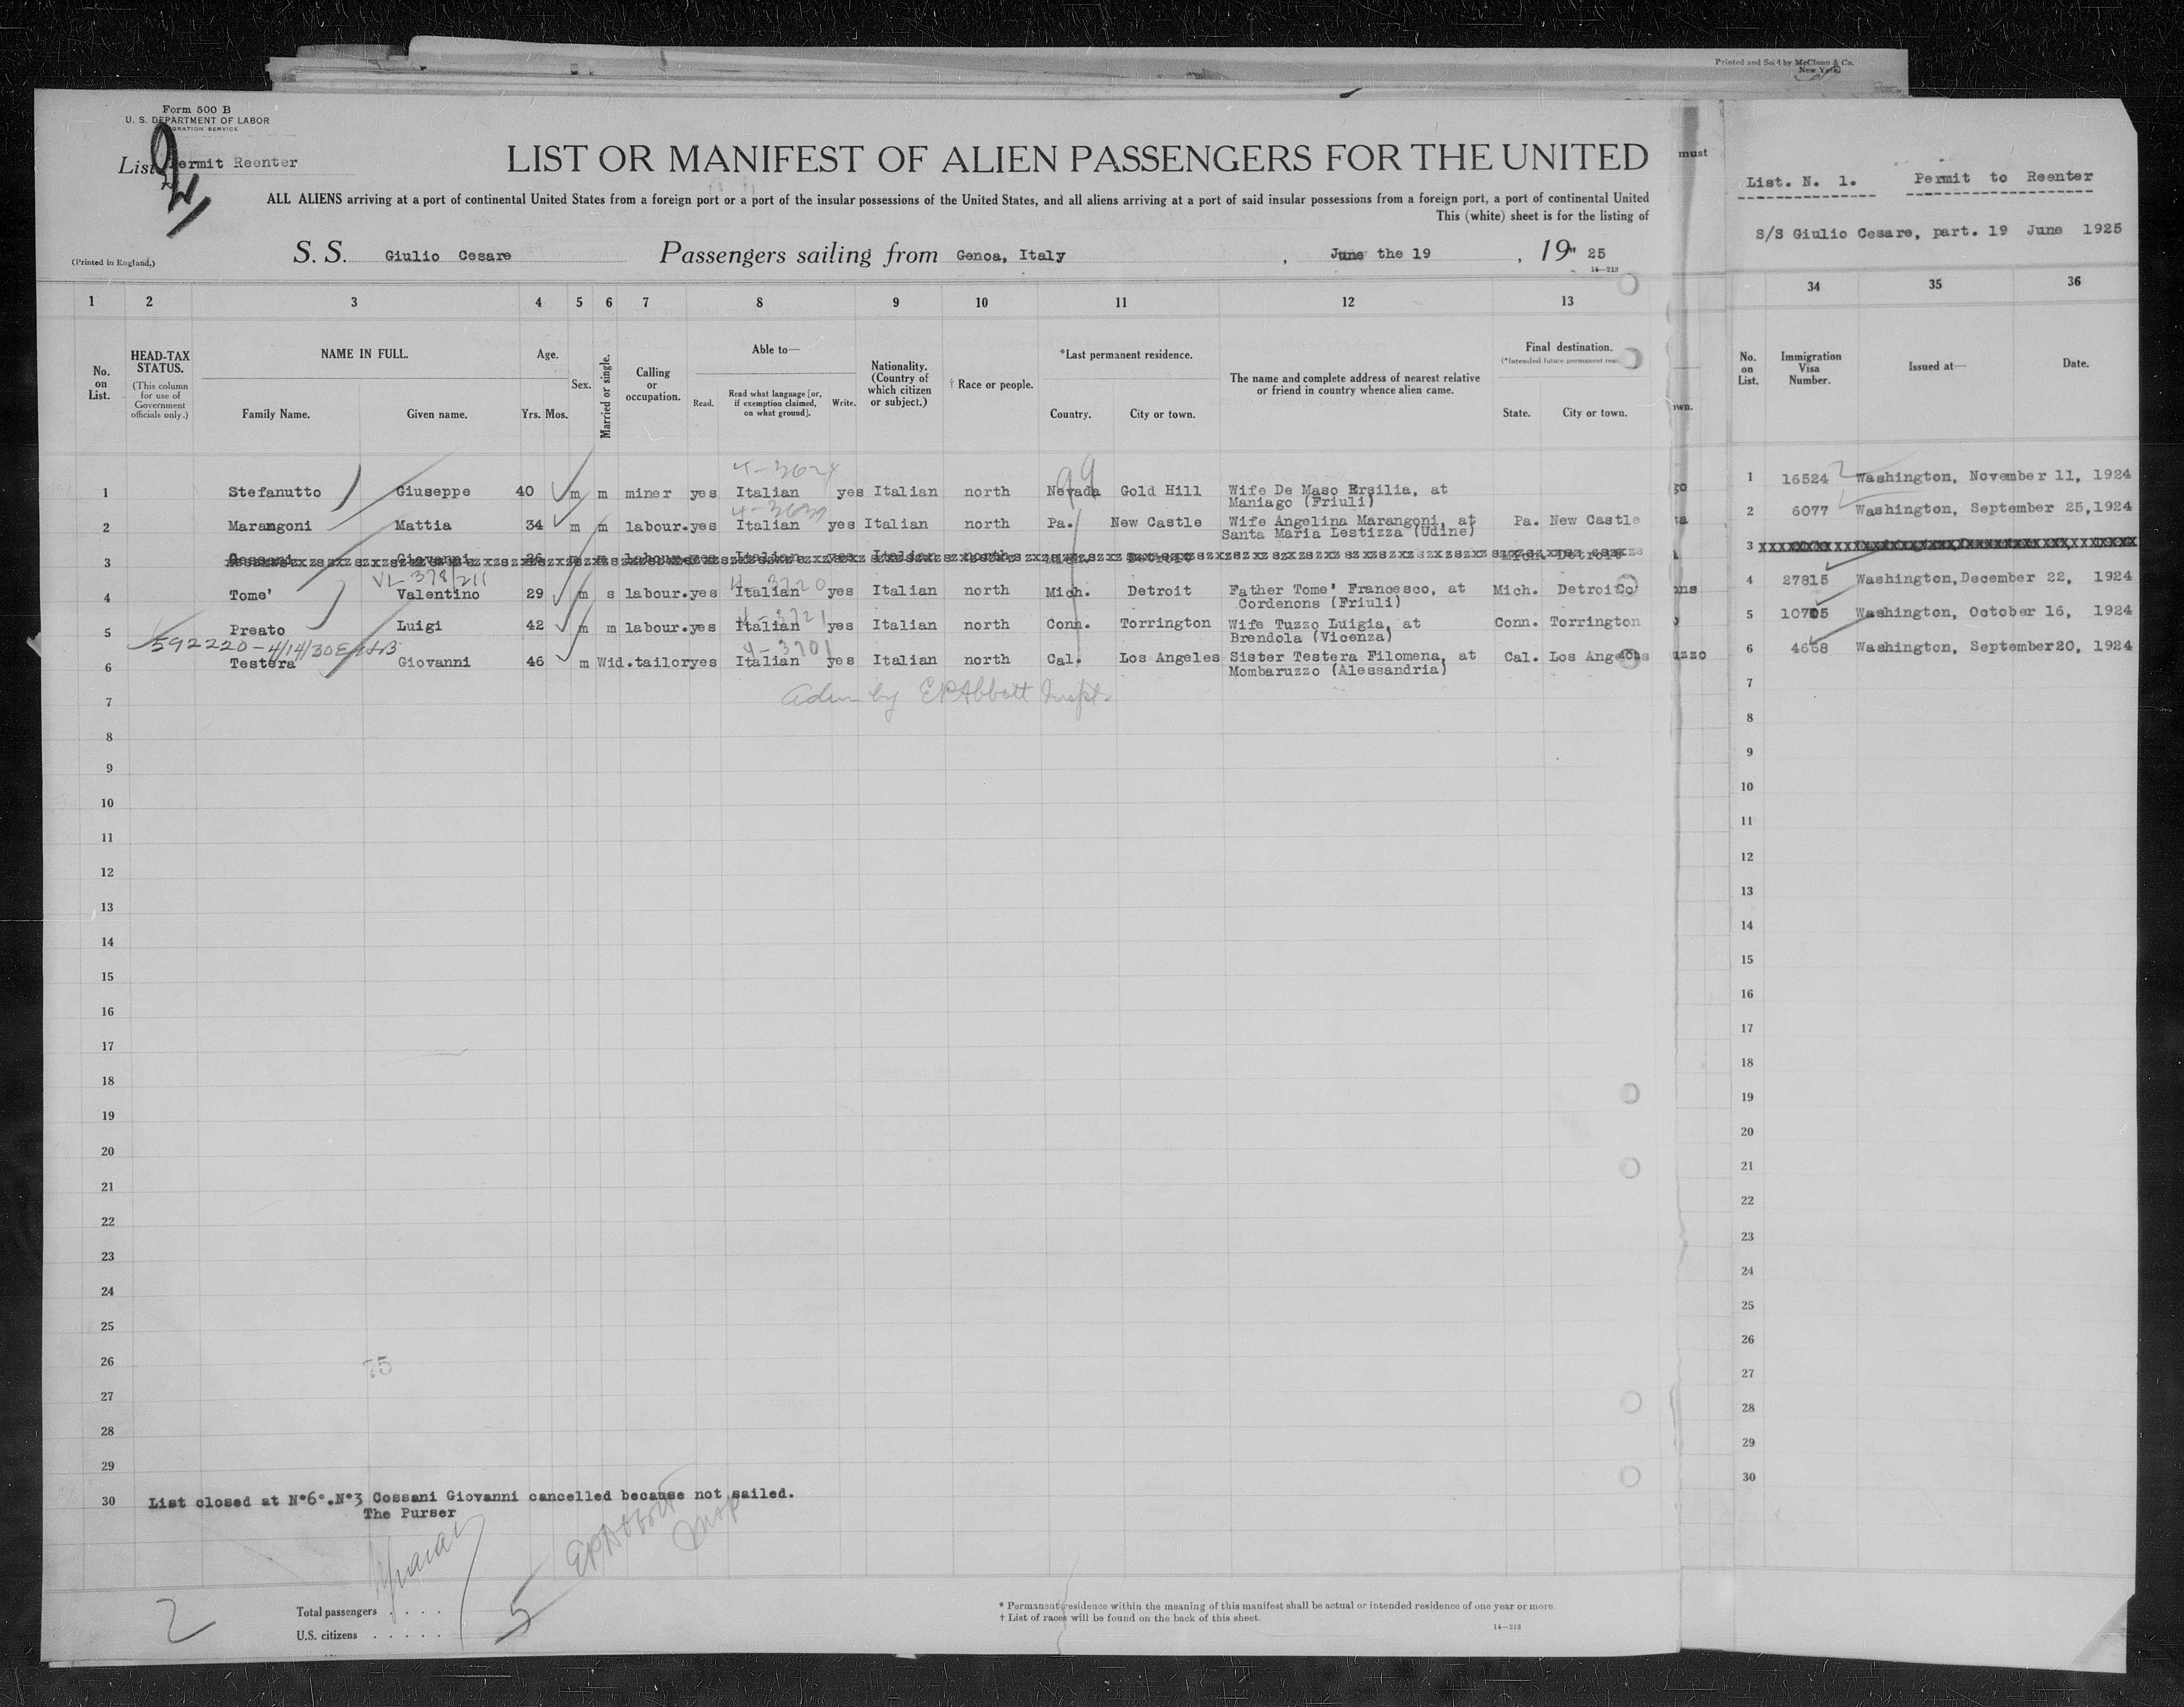 Printed and Sold by McClunn & Co.
New York
Form 500 B
U. S. DEPARTMENT OF LABOR
IMMIGRATION SERVICE
List Permit Reenter
2
LIST OR MANIFEST OF ALIEN PASSENGERS FOR THE UNITED
ALL ALIENS arriving at a port of continental United States from a foreign port or a port of the insular possessions of the United States, and all aliens arriving at a port of said insular possessions from a foreign port, a port of continental United
This (white) sheet is for the listing of
(Printed in England.)
S. S. Giulio Cesare Passengers sailing from Genoa, Italy , June the 19 , 19 25
14—213
must
List. N. 1. Permit to Reenter
S/S Giulio Cesare, part. 19 June 1925
1 2 3 4 5 6 7 8 9 10 11 12 13
34 35 36
No. on List.
HEAD-TAX STATUS.
(This column for use of Government officials only.)
NAME IN FULL.
Family Name. Given name.
Age.
Yrs. Mos.
Sex.
Married or single.
Calling or occupation.
Able to—
Read.
Read what language [or, if exemption claimed, on what ground].
Write.
Nationality. (Country of which citizen or subject.)
† Race or people.
*Last permanent residence.
Country. City or town.
The name and complete address of nearest relative or friend in country whence alien came.
Final destination.
(*Intended future permanent
State. City or town.
own.
No. on List.
Immigration Visa Number.
Issued at—
Date.
4-3624
99
1 Stefanutto Giuseppe 40 m m miner yes Italian yes Italian north Nevada Gold Hill Wife De Maso Ersilia, at
Maniago (Friuli)
go
1 16524 Washington, November 11, 1924
2 Marangoni Mattia 34 m m labour. yes Italian yes Italian north Pa. New Castle Wife Angelina Marangoni, at Pa. New Castle
Santa Maria Lestizza (Udine)
2 6077 Washington, September 25, 1924
3 Cossani Giovanni 26 m m labour. yes Italian yes Italian north Mich. Detroit Mich. Detroit
3
VL 378/211
4-3720
4 Tome' Valentino 29 m s labour. yes Italian yes Italian north Mich. Detroit Father Tome' Francesco, at Mich. Detroit
Cordenons (Friuli)
ons
4 27815 Washington, December 22, 1924
4-3721
5 Preato Luigi 42 m m labour. yes Italian yes Italian north Conn. Torrington Wife Tuzzo Luigia, at Conn. Torrington
Brendola (Vicenza)
5 10705 Washington, October 16, 1924
592220-4/14/30
4-3701
6 Testera Giovanni 46 m Wid. tailor yes Italian yes Italian north Cal. Los Angeles Sister Testera Filomena, at Cal. Los Angeles
Mombaruzzo (Alessandria)
uzzo
6 4658 Washington, September 20, 1924
Adm by EPAbbott Inspt.
7 7
8 8
9 9
10 10
11 11
12 12
13 13
14 14
15 15
16 16
17 17
18 18
19 19
20 20
21 21
22 22
23 23
24 24
25 25
26 26
75
27 27
28 28
29 29
30 30
List closed at N°6°. N°3 Cossani Giovanni cancelled because not sailed.
The Purser
EPAbbott
Insp
2
Total passengers . . . .
5
U.S. citizens . . . . .
* Permanent residence within the meaning of this manifest shall be actual or intended residence of one year or more.
† List of races will be found on the back of this sheet.
14—213